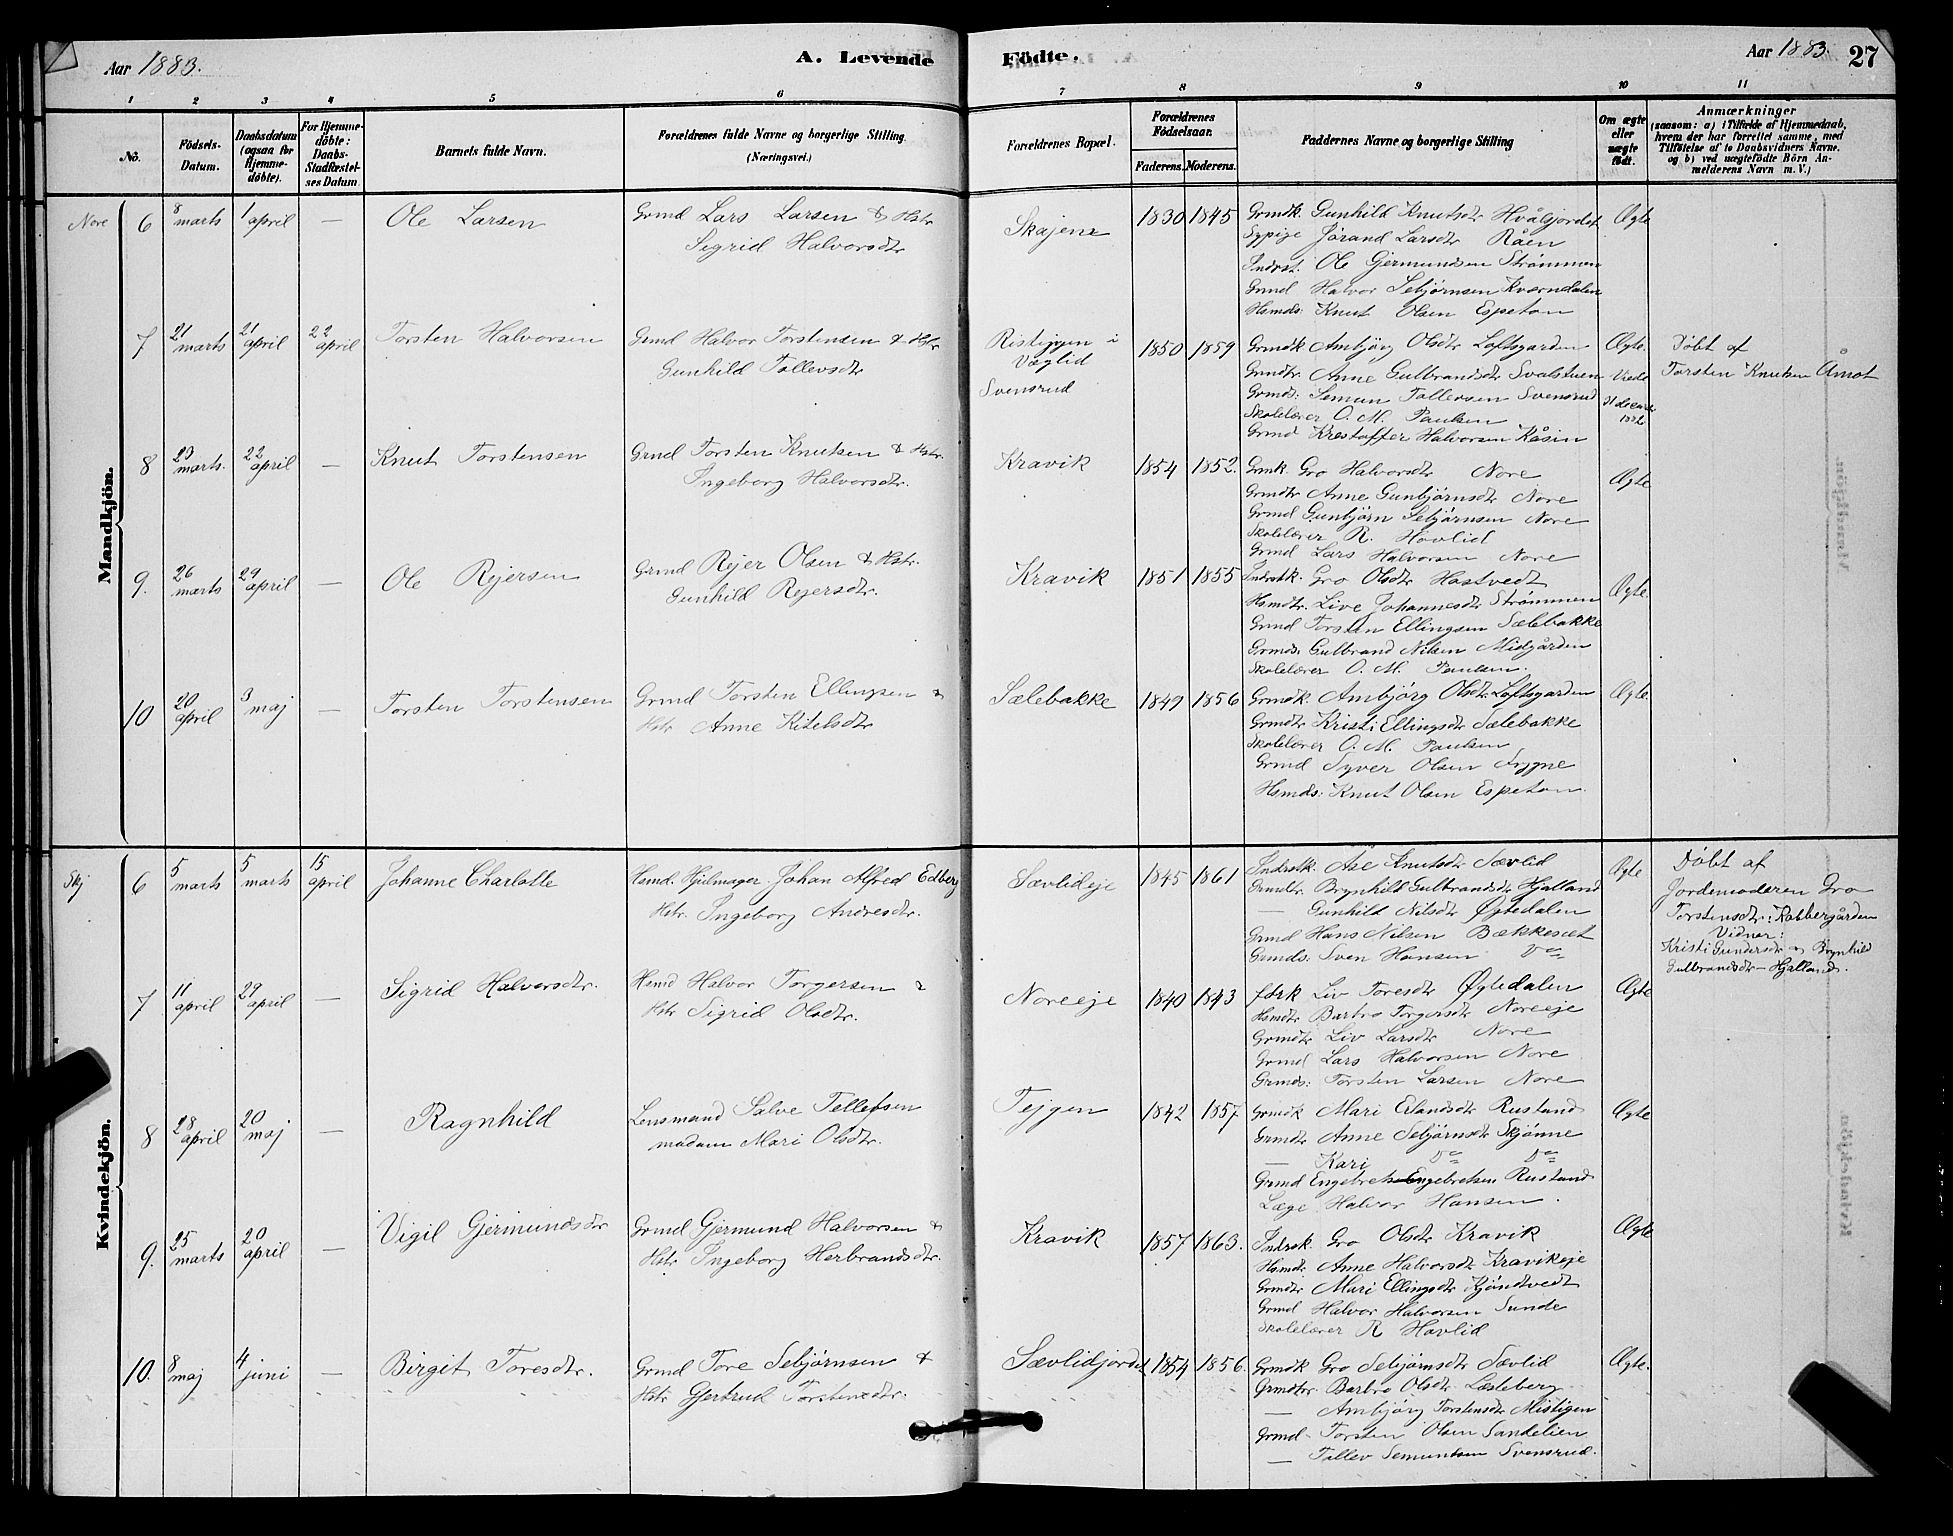 Aar 1883.
A. Levende
Födte.
Aar 1883.
27
1 2 3 4 5 6 7 8 9 10 11
No.
Födsels-Datum.
Daabsdatum (ogsaa for Hjemme-döbte).
For Hjemme-döbte: Daabs-Stadfæstel-ses Datum.
Barnets fulde Navn.
Forældrenes fulde Navne og borgerlige Stilling (Næringsvei.)
Forældrenes Bopæl.
Forældrenes Födselsaar.
Faderens. Moderens.
Faddernes Navne og borgerlige Stilling
Om ægte eller uægte födt.
Anmærkninger
(saasom: a) i Tilfælde af Hjemmedaab, hvem der har forrettet samme, med Tilföielse af to Daabsvidners Navne. og b) ved uægtefödte Börn An-melderens Navn m. V.)
Mandkjön.
Nore 6 8 marts 1 april — Ole Larsen
Grmd Lars Larsen & Hstr
Sigrid Halvorsdtr
Skajem 1830 1845
Grmdk. Gunhild Knutsdtr Hvålsjordet
Sypige Jörand Larsdtr Råen
Indrst. Ole Gjermundsen Strömmen
Grmd Halvor Sebjörnsen Kværndalen
Hsmds: Knut Olsen Espeton
Ægte
7 21 marts 21 april 22 april Torsten Halvorsen
Grmd Halvor Torstensen & Hstr
Gunhild Tollevsdtr
Ristigjen i
Væglid
Svensrud
1850 1859
Grmdk Ambjörg Olsdtr Loftsgarden
Grmdtr. Anne Gulbrandsdtr Svalstuen
Grmds: Semun Tollevsen Svensrud
Skolelærer O. M. Paulsen
Grmd Krestoffer Halvorsen Kåsin
Ægte.
Döbt af
Torsten Knutsen Åmot
8 23 marts. 22 april — Knut Torstensen
Grmd Torsten Knutsen & Hstr.
Ingeborg Halvorsdtr.
Kravik 1854 1852.
Grmk. Gro Halvorsdtr Nore
Grmdtr Anne Gunbjörnsdtr Nore
Grmd Gunbjörn Sebjörnsen Nore
Skolelærer R. Hovlid
Grmd Lars Halvorsen Nore
Ægte
9. 26 marts 29 april — Ole Rejersen
Grmd Rejer Olsen & Hstr.
Gunhild Rejersdtr.
Kravik 1851 1855
Indrstk. Gro Olsdtr Hostvedt
Hsmdtr. Live Johannesdtr Strömmen
Grmd Torsten Ellingsen Sælebakke
Grmds: Gulbrand Nilsen Midgården
Skolelærer O. M. Paulsen.
Ægte.
10 20 april 3 maj — Torsten Torstensen
Grmd Torsten Ellingsen &
Hstr Anne Kitelsdtr
Sælebakke 1849 1856
Grmdk. Ambjörg Olsdtr. Loftsgarden
Grmdtr Kristi Ellingsdtr Sælebakke
Skolelærer O. M. Paulsen
Grmd Syver Olsen Frygne
Hsmds: Knut Olsen Espeton.
Ægte
Kvindekjön.
Skj 6 5 marts 5 marts 15 april Johanne Charlotte
Hsmd. Hjulmager Johan Alfred Edberg
Hstr. Ingeborg Andresdtr.
Sævlideje 1845 1861
Indrstk. Åse Knutsdtr Sævlid
Grmdtr. Brynhild Gulbrandsdtr Hjalland
— Gunhild Nilsdtr Øgtedalen
Grmd Hans Nilsen Bækkesæt
Grmds: Sven Hansen Do
Ægte
Döbt af
Jordemoderen Gro
Torstensdtr: Kobbergården
Vidner:
Kristi Gundersdtr og Brynhild
Gulbrandsdtr Hjalland.
7 11 april 29 april — Sigrid Halvorsdtr.
Hsmd Halvor Torgersen &
Hstr Sigrid Olsdtr.
Noreeje 1840 1843
fdrk Liv Toresdtr Øgtedalen
Hsmdtr Barbro Torgersdtr Noreeje
Grmdtr Liv Larsdtr Nore
Grmd Lars Halvorsen Nore
Grmds: Torsten Larsen Nore
Ægte
8 28 april 20 maj — Ragnhild
Lensmand Salve Tellefsen
madam Mari Olsdtr.
Tejgen 1842 1857
Grmdk Mari Erlandsdtr Rustand
Grmdtr Anne Sebjörnsdtr Skjönne
— Kari Do Do
Grmd Engebret Engebretsen Rustand
Læge Halvor Hansen.
Ægte
9. 25 marts 20 april — Vigil Gjermundsdtr
Grmd Gjermund Halvorsen &
Hstr Ingeborg Herbrandsdtr.
Kravik 1857 1863.
Indrsk. Gro Olsdtr Kravik
Hsmdtr Anne Halvorsdtr Kravikeje
Grmdtr Mari Ellingsdtr Kjöndvedt
Grmd Halvor Halvorsen Sunde
Skolelærer R Hovlid
Ægte
10. 8 maj 4 juni — Birgit Toresdtr.
Grmd Tore Sebjörnsen &
Hstr Gjertrud Torstensdtr.
Sævlidjordet 1854 1856.
Grmdk Gro Sebjörnsdtr Sævlid
Grmdtr Barbro Olsdtr Læsteberg
— Ambjörg Torstensdtr Mistigen
Grmd Torsten Olsen Sandelien
— Tollev Semundsen Svensrud.
Ægte.